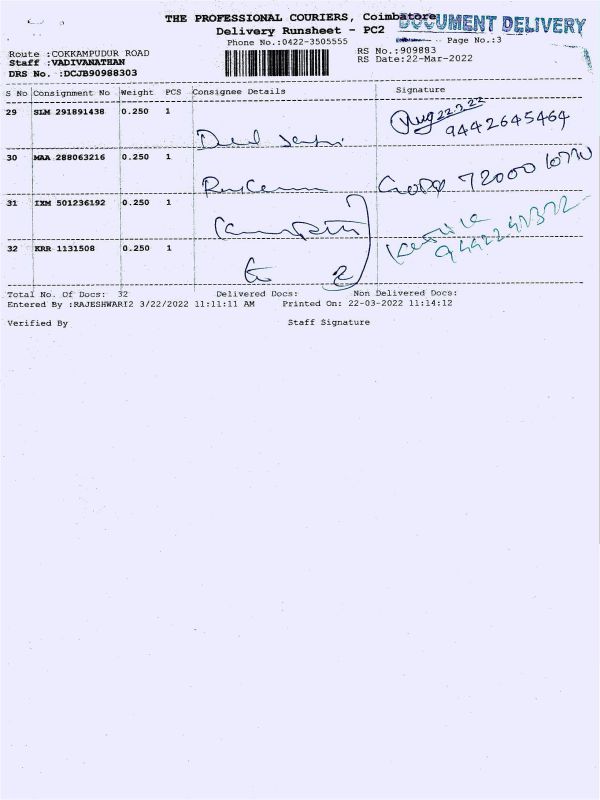 THE PROFESSIONAL COURIERS, Coimbatore
DOCUMENT DELIVERY
Delivery Runsheet - PC2
Phone No.:0422-3505555
Page No.:3
Route :COKKAMPUDUR ROAD
RS No.:909883
Staff :VADIVANATHAN
RS Date:22-Mar-2022
DRS No. :DCJB90988303
S No Consignment No Weight PCS Consignee Details Signature
29 SLM 291891438 0.250 1
22.3.22
9442645464
30 MAA 288063216 0.250 1
31 IXM 501236192 0.250 1
32 KRR 1131508 0.250 1
2
Total No. Of Docs: 32 Delivered Docs: Non Delivered Docs:
Entered By :RAJESHWARI2 3/22/2022 11:11:11 AM Printed On: 22-03-2022 11:14:12
Verified By Staff Signature